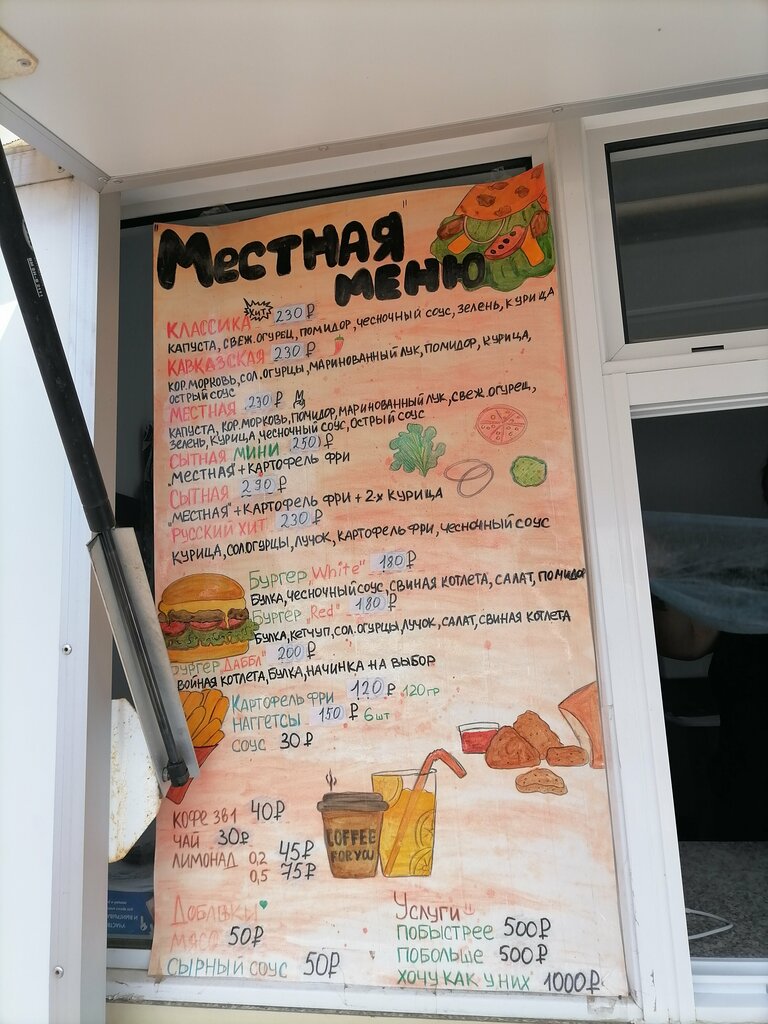 Местная
меню
Классика хит 230₽
капуста, свеж.огурец, помидор, чесночный соус, зелень, курица
Кавказская 230₽
кор.морковь, сол.огурцы, маринованный лук, помидор, курица,
острый соус
Местная 230₽
капуста, кор.морковь, помидор, маринованный лук, свеж.огурец,
зелень, курица, чесночный соус, острый соус
Сытная мини 250₽
"Местная" + картофель фри
Сытная 290₽
"Местная" + картофель фри + 2-х курица
Русский хит 230₽
курица, сол.огурцы, лучок, картофель фри, чесночный соус
Бургер "White" 180₽
булка, чесночный соус, свиная котлета, салат, помидор
Бургер "Red" 180₽
булка, кетчуп, сол.огурцы, лучок, салат, свиная котлета
Бургер "Даббл" 200₽
двойная котлета, булка, начинка на выбор
Картофель фри 120₽ 120гр
Наггетсы 150₽ 6шт
Соус 30₽
Кофе 3в1 40₽
Чай 30₽
Лимонад 0,2 45₽
0,5 75₽
COFFEE
FOR YOU
Добавки
мясо 50₽
сырный соус 50₽
Услуги
побыстрее 500₽
побольше 500₽
хочу как у них 1000₽